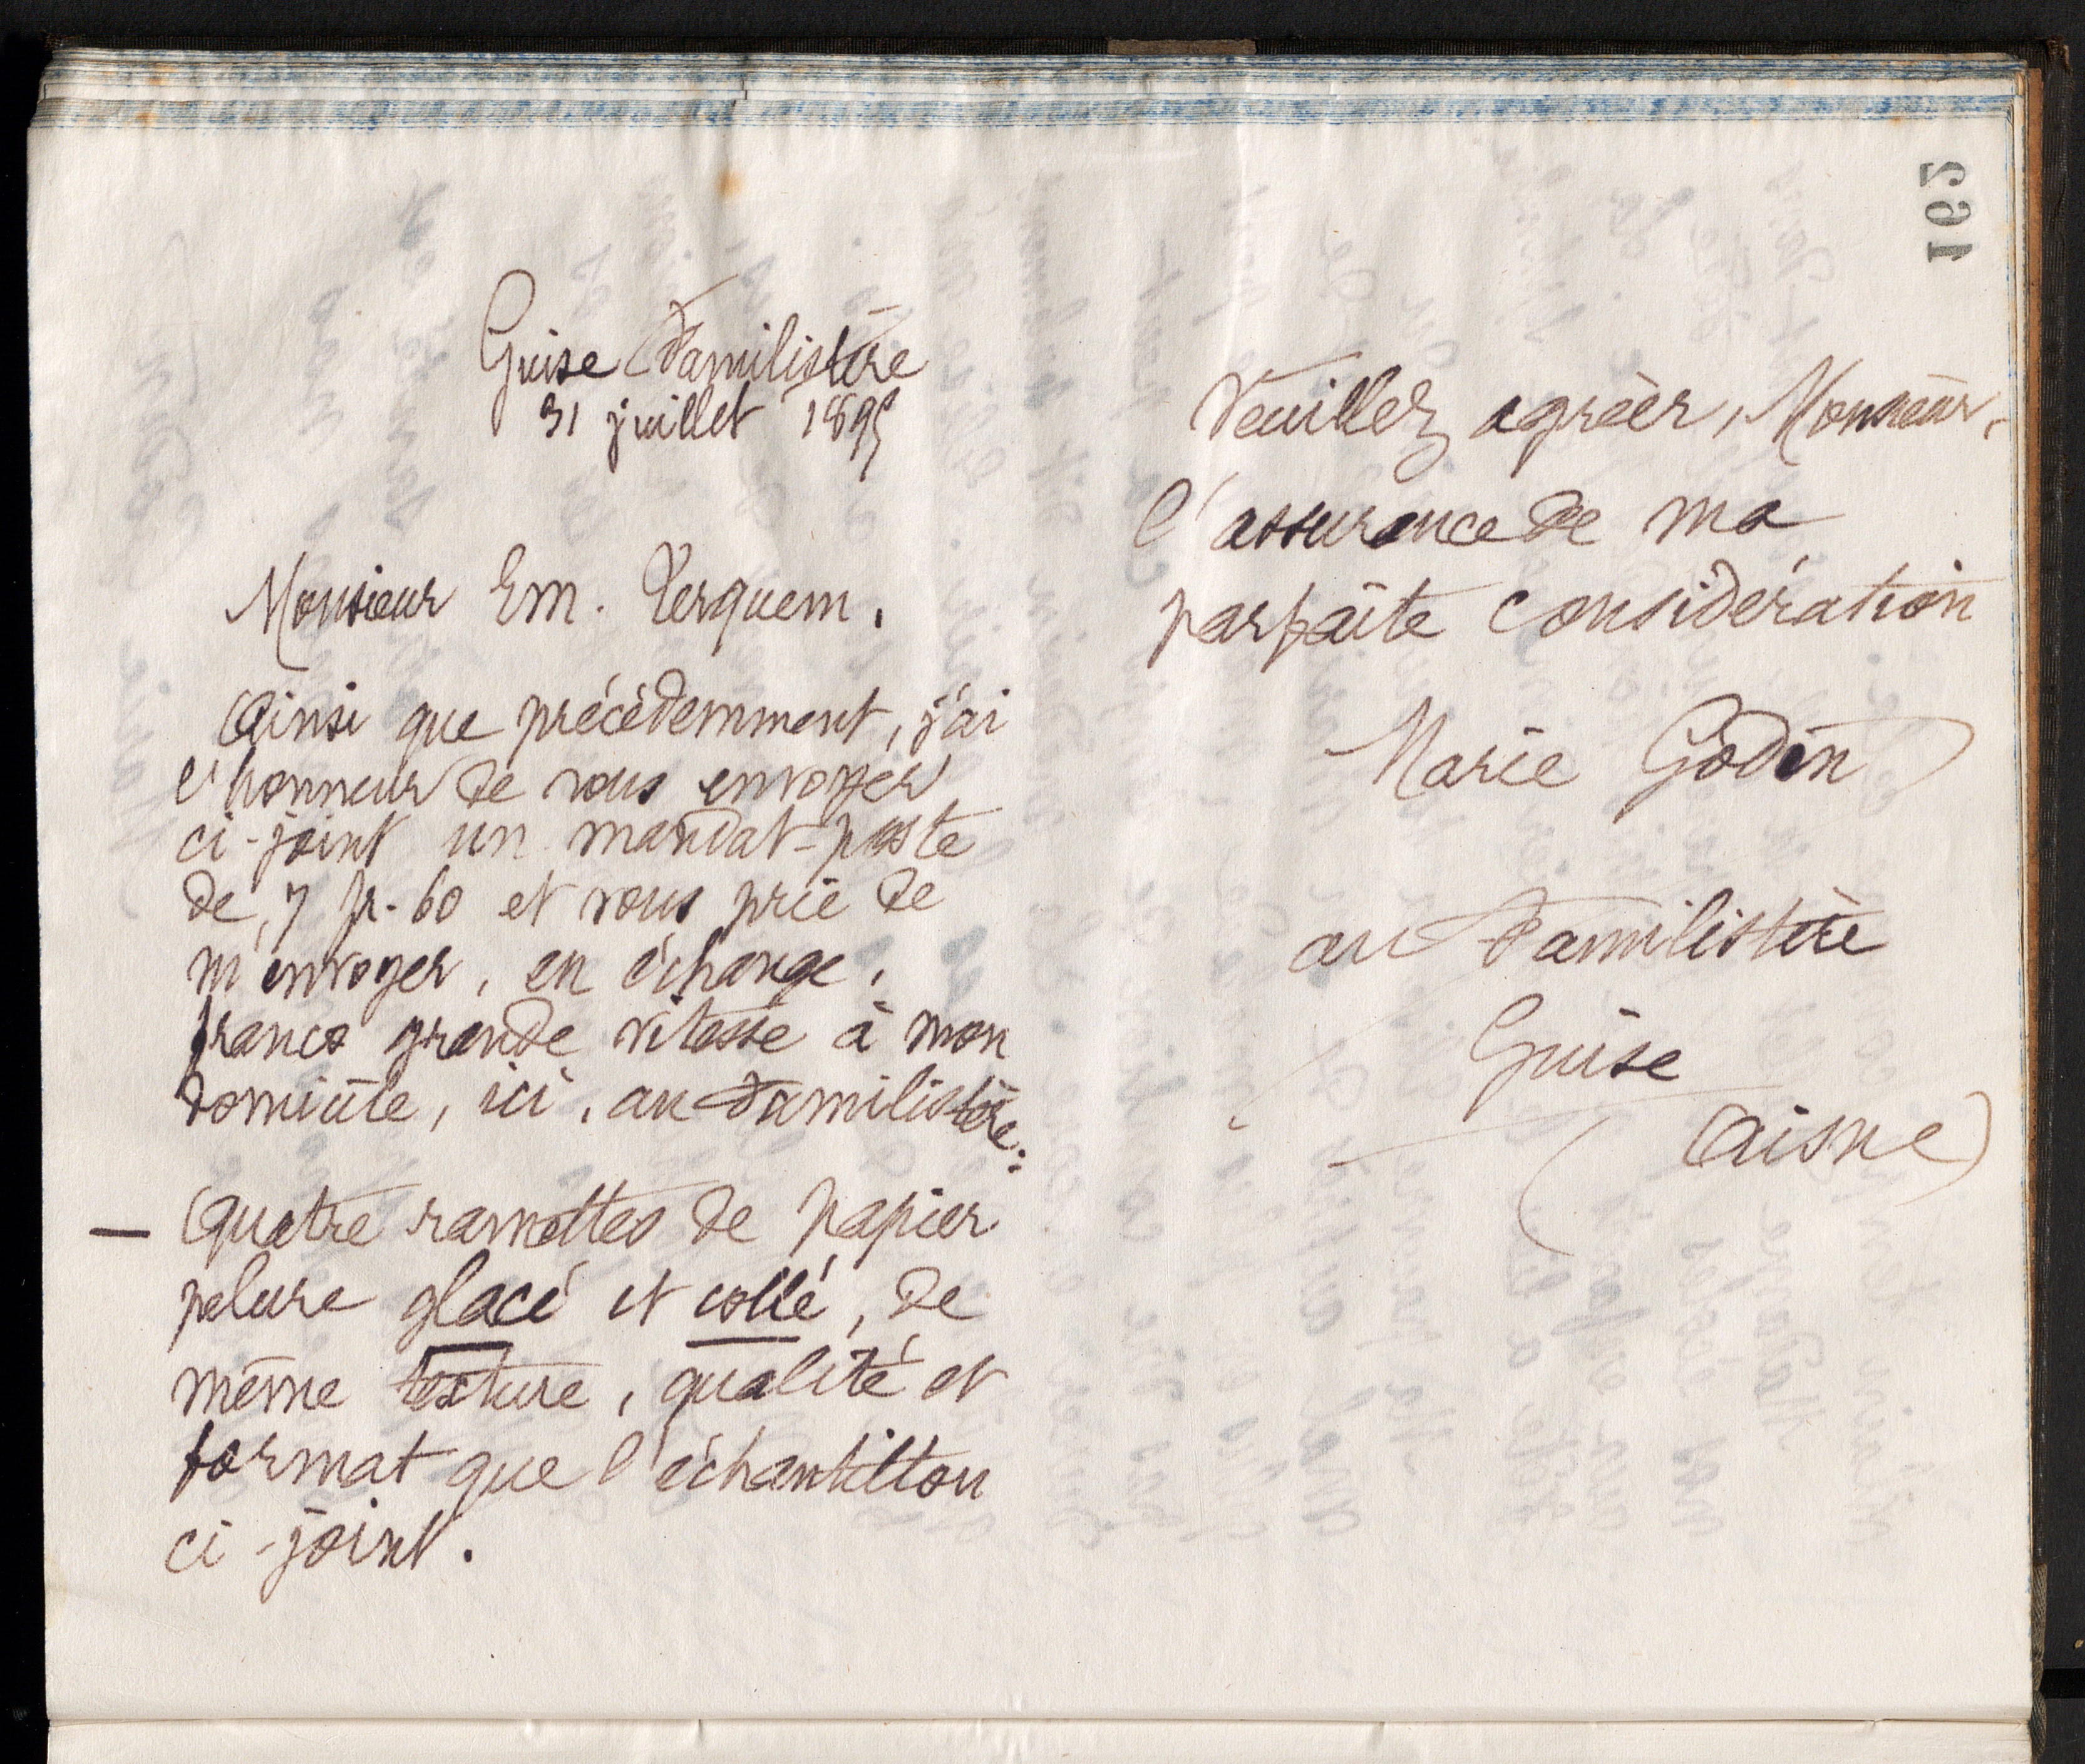 Guise Familistère
31 juillet 1895
Monsieur Em. Terquem.
Ainsi que précédemment, j'ai
l'honneur de vous envoyer
ci-joint un mandat-poste
de 7 fr. 60 et vous prie de
m'envoyer, en échange,
franco grande vitesse à mon
domicile, ici, au Familistère:
— Quatre ramettes de papier
pelure glacé et collé, de
même texture, qualité et
format que l'échantillon
ci-joint.
162
Veuillez agréer, Monsieur,
l'assurance de ma
parfaite considération
Marie Godin
au Familistère
Guise
(Aisne)